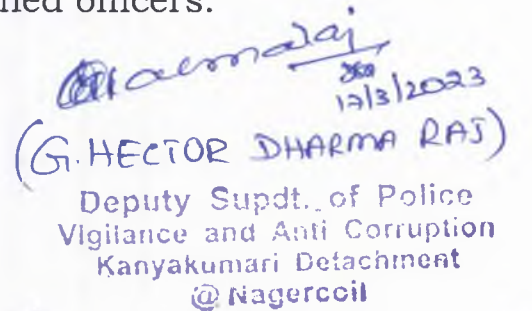 ned officers.
17/3/2023
(G. HECTOR DHARMA RAJ)
Deputy Supdt. of Police
Vigilance and Anti Corruption
Kanyakumari Detachment
@ Nagercoil